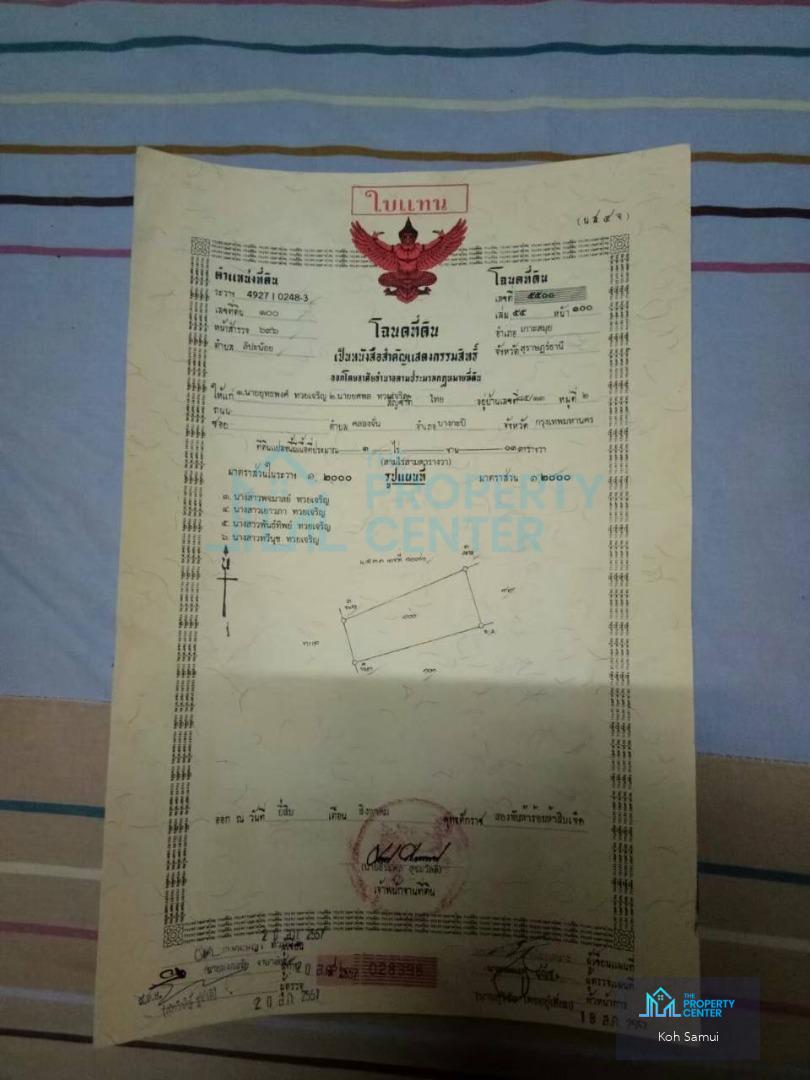 ใบแทน
(น ส ๔ จ)
ตำแหน่งที่ดิน
ระวาง 4927 I 0248-3
เลขที่ดิน ๑๐๐
หน้าสำรวจ ๖๙๖
ตำบล ลิปะน้อย
โฉนดที่ดิน
เลขที่ ๕๕๐๐
เล่ม ๕๕ หน้า ๑๐๐
อำเภอ เกาะสมุย
จังหวัด สุราษฎร์ธานี
โฉนดที่ดิน
เป็นหนังสือสำคัญแสดงกรรมสิทธิ์
ออกโดยอาศัยอำนาจตามประมวลกฎหมายที่ดิน
ให้แก่ ๑.นายยุทธพงศ์ ทวยเจริญ ๒.นายยศพล ทวยเจริญ สัญชาติ ไทย อยู่บ้านเลขที่ หมู่ที่ ๒
ถนน
ซอย ตำบล คลองจั่น อำเภอ บางกะปิ จังหวัด กรุงเทพมหานคร
ที่ดินแปลงนี้มีเนื้อที่ประมาณ ๓ ไร่ งาน ๐๓ ตารางวา
(สามไร่สามตารางวา)
มาตราส่วนในระวาง ๑:๒๐๐๐ รูปแผนที่ มาตราส่วน ๑:๒๐๐๐
๓. นางสาวพจมาลย์ ทวยเจริญ
๔. นางสาวเยาวภา ทวยเจริญ
๕. นางสาวพันธ์ทิพย์ ทวยเจริญ
๖. นางสาวทวีนุช ทวยเจริญ
THE
PROPERTY
CENTER
น
๑๐๐
ออก ณ วันที่ ยี่สิบ เดือน สิงหาคม พุทธศักราช สองพันห้าร้อยห้าสิบเจ็ด
เจ้าพนักงานที่ดิน
2 0 ส.ค. 2557
028396
ผู้เขียนแผนที่
ผู้ตรวจแผนที่
ผู้ตรวจ
2 0 ส.ค. 2557
18 ส.ค. 2557
THE
PROPERTY
CENTER
Koh Samui